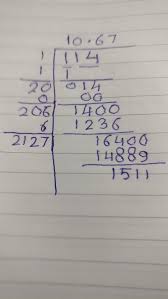 10.67
1 114
1 1
20 014
0 00
206 1400
6 1236
2127 16400
14889
1511